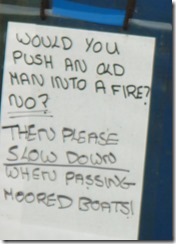 WOULD YOU
PUSH AN OLD
MAN INTO A FIRE?
NO?
THEN PLEASE
SLOW DOWN
WHEN PASSING
MOORED BOATS!